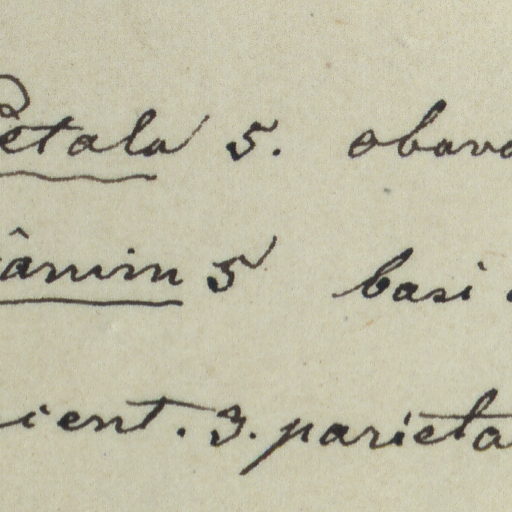 Petala 5. obava
âmin 5 basi
ient. 3. parieta